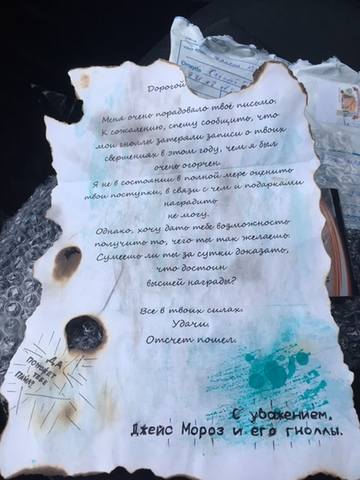 Дорогой
Меня очень порадовало твоё письмо.
К сожалению, спешу сообщить, что
мои гноллы затеряли записи о твоих
свершениях в этом году, чем я был
очень огорчен.
Я не в состоянии в полной мере оценить
твои поступки, в связи с чем и подарками
наградить
не могу.
Однако, хочу дать тебе возможность
получить то, чего ты так желаешь.
Сумеешь ли ты за сутки доказать,
что достоин
высшей награды?
Все в твоих силах.
Удачи.
Отсчет пошел.
ДА
ПОМОЖЕТ
ТЕБЕ
С уважением,
Джейс Мороз и его гноллы.